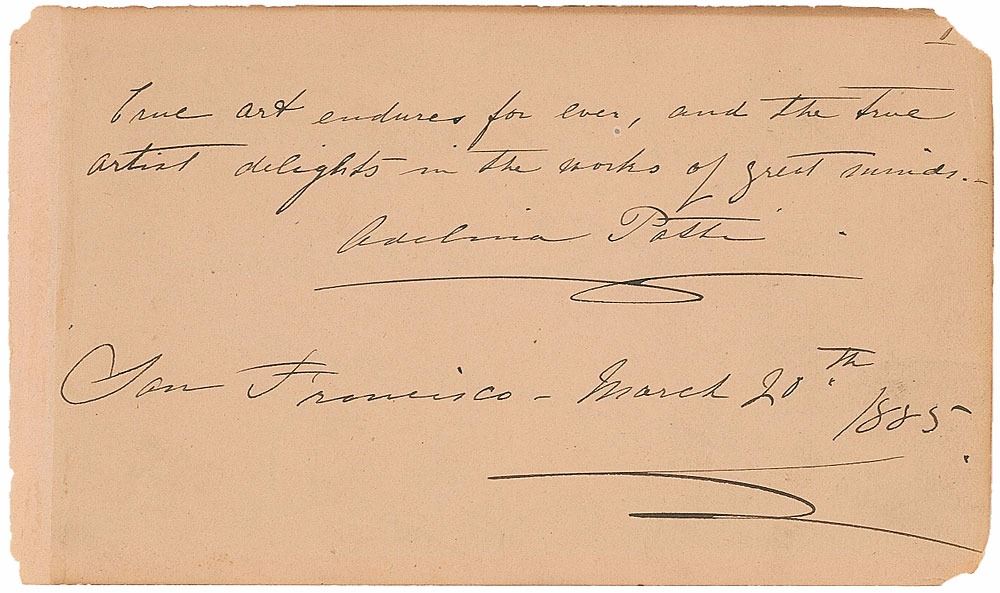 True art endures for ever, and the true
artist delights in the works of great minds.—
Adelina Patti.
San Francisco – March 20th
1885.